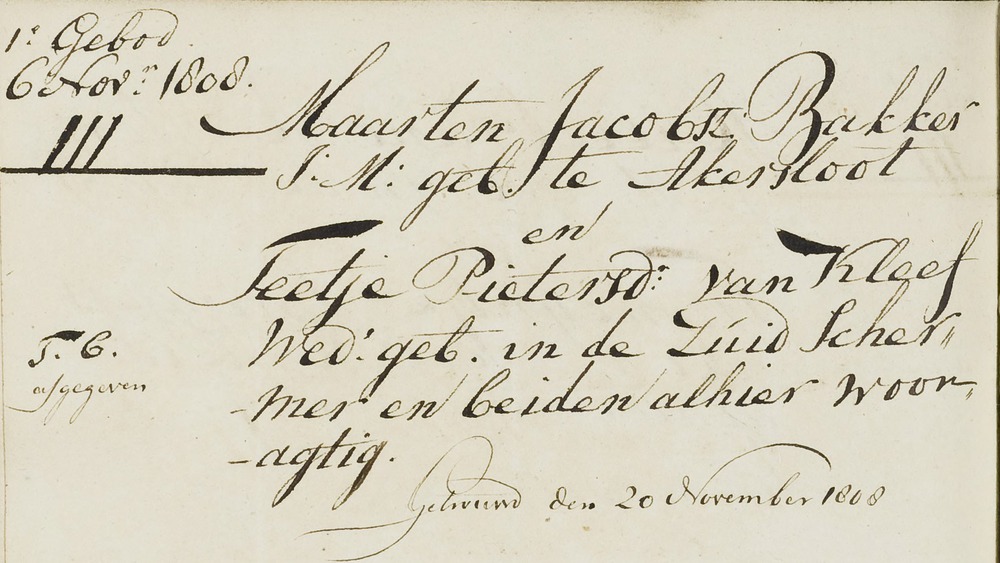 1e Gebod
6 Novr. 1808.
III
Maarten Jacobsz: Bakker
J: M: geb. te Akersloot
en
Teetje Pietersd: van Kleef
Wed: geb. in de Zuid Scher„
-mer en beiden alhier woon„
-agtig.
T. C.
afgegeven
Getrouwd den 20 November 1808